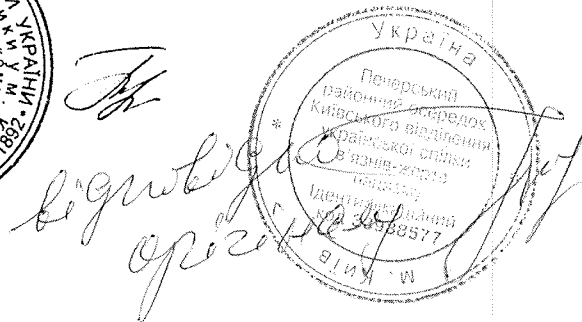 УКРАЇНИ
1892
Україна
Печерський
районний осередок
Київського відділення
української спілки
в'язнів-жертв
нацизму
Ідентифікаційний
38577
м. Київ
відповідає
оригіналу